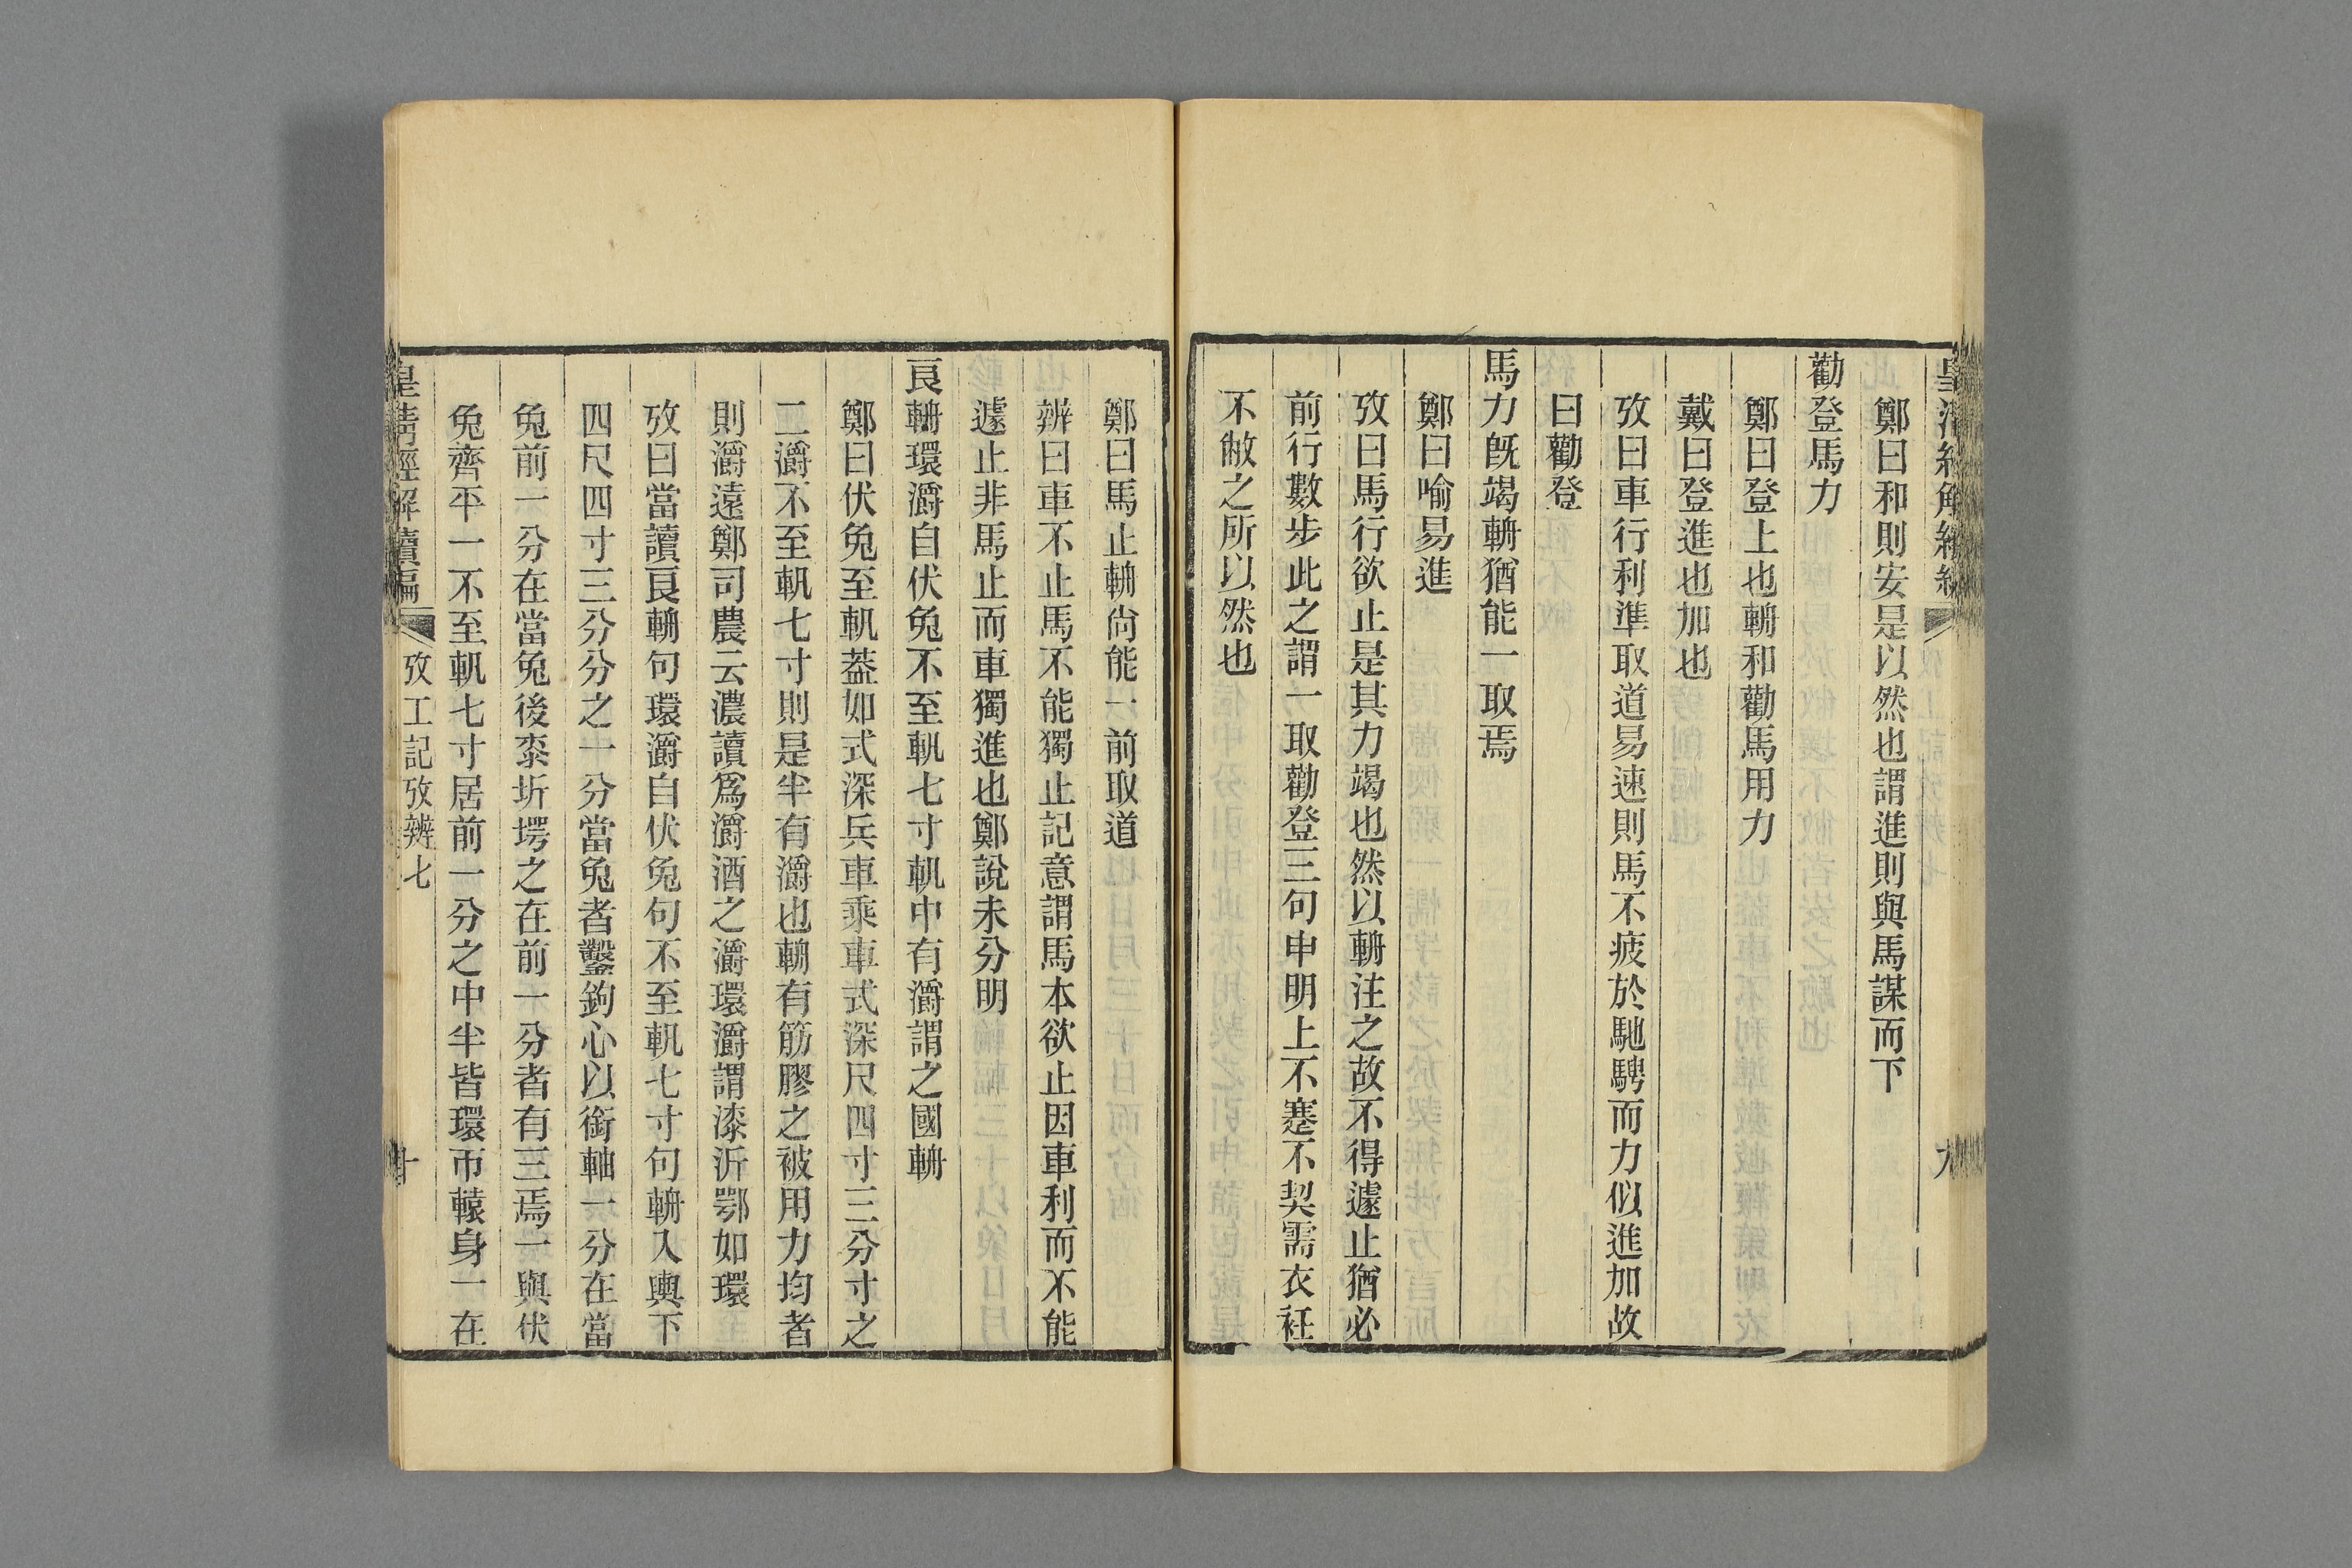 鄭曰和則安是以然也謂進則與馬謀而下
勸登馬力
鄭曰登上也輈和勸馬用力
戴曰登進也加也
攷曰車行利準取道易速則馬不疲於馳騁而力似進加故
曰勸登
馬力旣竭輈猶能一取焉
鄭曰喻易進
攷曰馬行欲止是其力竭也然以輈注之故不得遽止猶必
前行數步此之謂一取勸登三句申明上不蹇不契需衣衽
不敝之所以然也
鄭曰馬止輈尙能一前取道
辨曰車不止馬不能獨止記意謂馬本欲止因車利而不能
遽止非馬止而車獨進也鄭說未分明
良輈環灂自伏兔不至軓七寸軓中有灂謂之國輈
鄭曰伏兔至軓蓋如式深兵車乘車式深尺四寸三分寸之
二灂不至軓七寸則是半有灂也輈有筋膠之被用力均者
則灂遠鄭司農云濃讀爲灂酒之灂環灂謂漆沂鄂如環
攷曰當讀良輈句環灂自伏兔句不至軓七寸句輈入輿下
四尺四寸三分分之一分當兔者鑿鉤心以銜軸一分在當
兔前一分在當兔後桼圻堮之在前一分者有三焉一與伏
兔齊平一不至軓七寸居前一分之中半皆環帀轅身一在
皇淸經解續編
攷工記攷辨七
十